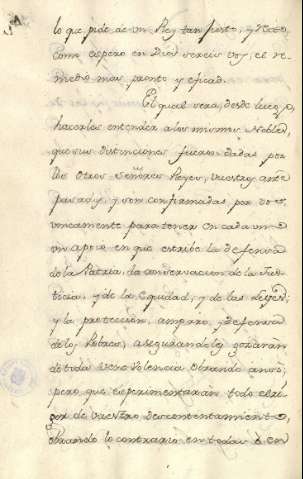 lo que pide de un Rey tan justo, y recto,
como espero en Dios sereis Vos, el re-
medio mas pronto y eficaz.
El qual sera, desde luego,
hacerles entender a los mismos Nobles,
que sus distinciones fueron dadas por
los otros Señores Reyes, vuestros ante
pasados, y son confirmadas por vos
unicamente para tener en cada uno
un apoyo en que estribe la defensa
de la Patria, la conservacion de la Jus-
ticia, y de la Equidad, y de las Leyes,
y la proteccion, amparo, y defensa
de los Pobres, asegurandoles gozaran
de toda vuestra Obrando asi;
pero que experimentaran todo el ri-
gor de vuestro descontentamiento,
obrando lo contrario en todas o en